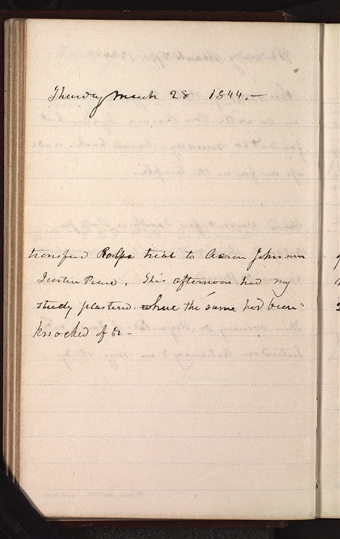 Thursday March 28 1844.—
transfered Rolfs trial to Aaron Johnson
Justice Peace. This afternoon had my
study plastered where the same had been
knocked off &c —